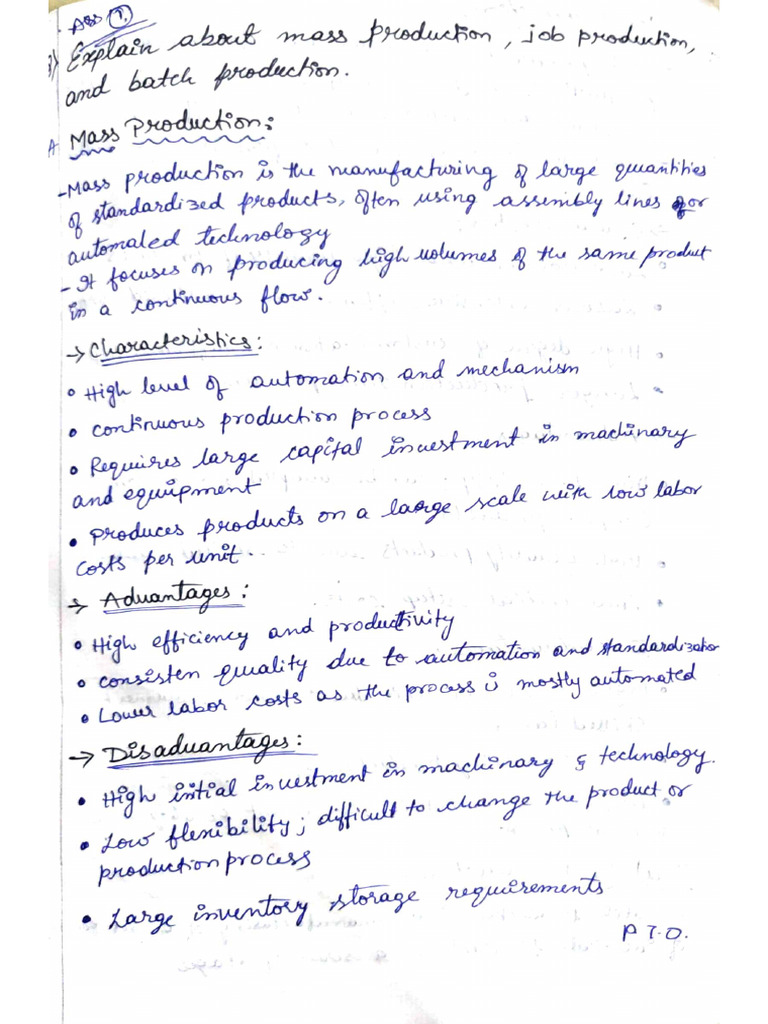 Ass ①.
3) Explain about mass production, job production,
and batch production.
A Mass Production:
-Mass production is the manufacturing of large quantities
of standardized products, often using assembly lines or
automated technology
- It focuses on producing high volumes of the same product
in a continuous flow.
→ Characteristics:
• High level of automation and mechanism
• continuous production process
• Requires large capital investment in machinary
and equipment
• Produces products on a large scale with low labor
costs per unit.
→ Advantages:
• High efficiency and productivity
• consisten quality due to automation and standardization
• Lower labor costs as the process is mostly automated
→ Disadvantages:
• High initial investment in machinary & technology.
• Low flexibility; difficult to change the product or
production process
• Large inventory storage requirements
P T.O.